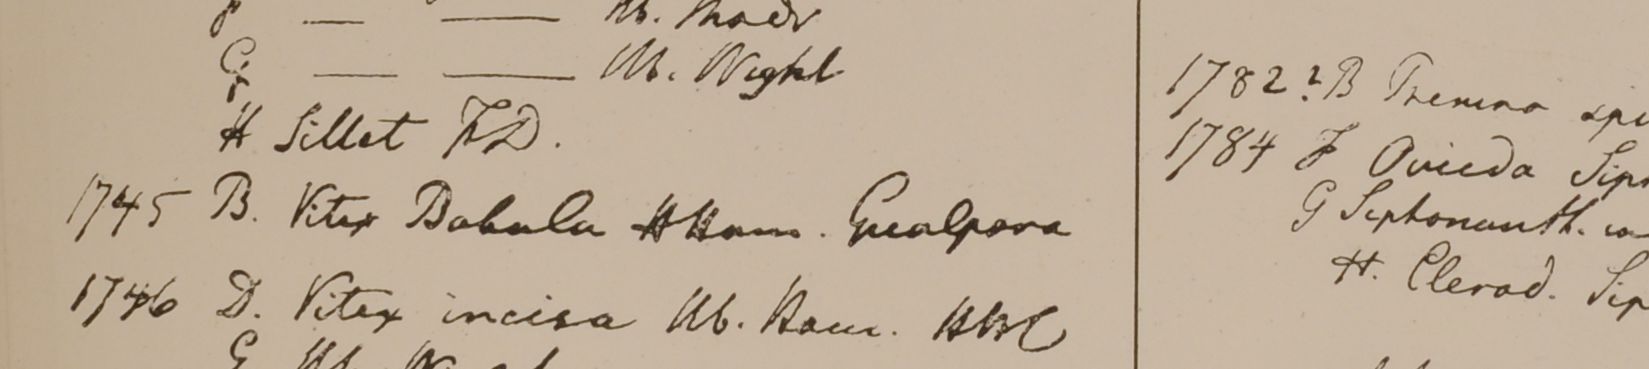 F — — Hb. Madr
G — — Hb. Wight
H Sillet F.D.
1745 B. Vitex Babula HHam. Gualpara
1746 D. Vitex incisa Hb. Ham. HBC
G Hb.
1782 2 B Premna spi
1784 F Ovieda Siph
G Siphonanth.
H. Clerod. Sip